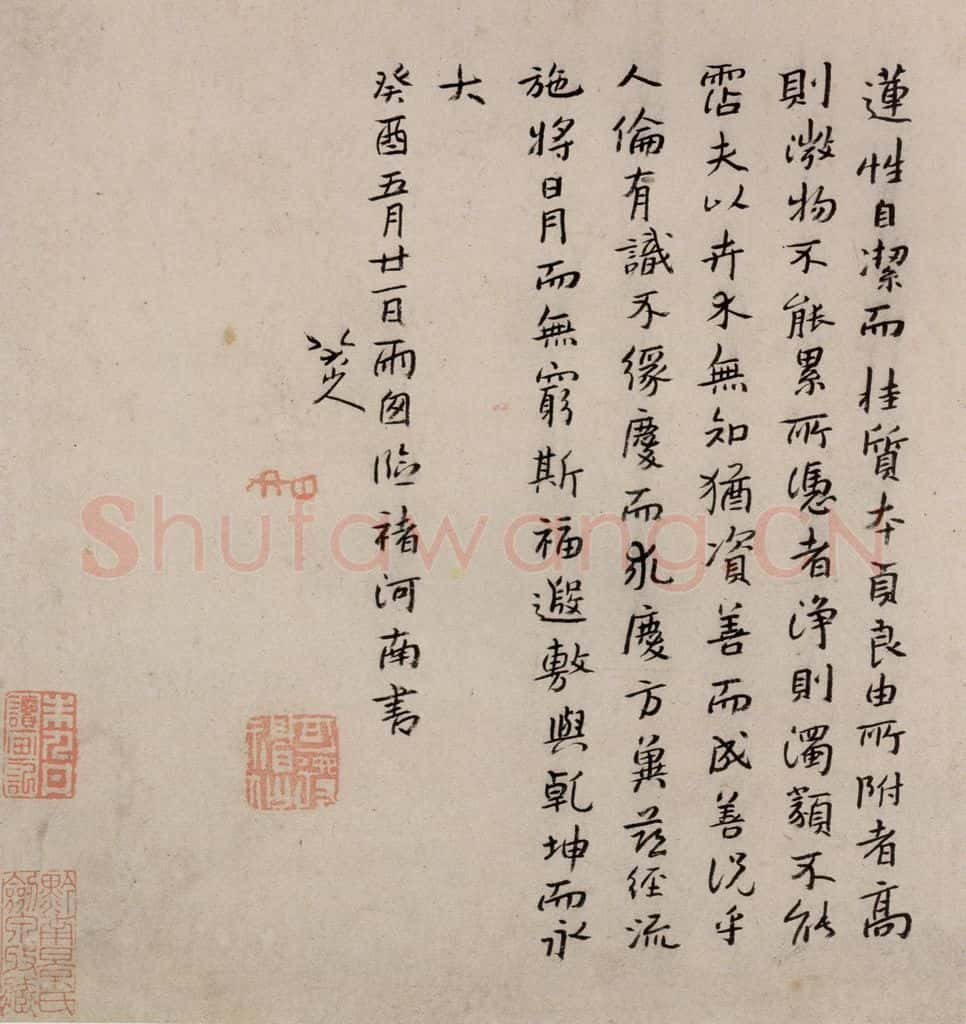 蓮性自潔而桂質本貞良由所附者高
則溦物不能累所慿者浄則濁類不能
霑夫以卉木無知猶資善而成善況乎
人倫有識不緣慶而求慶方冀茲經流
施將日月而無窮斯福遐敷與乾坤而永
大
癸酉五月廿一日雨囱臨褚河南書
八大山人
可得神仙
黔南景氏劍泉收藏
Shufawang.CN